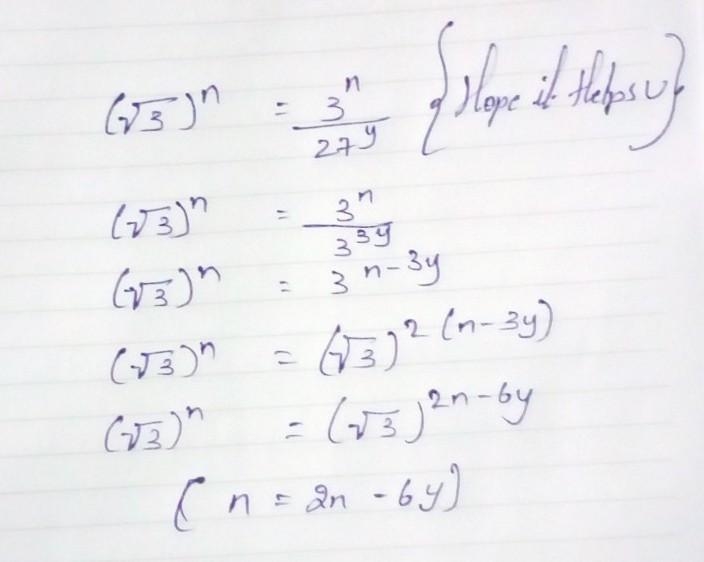 (√3)^n = 3^n / 27^y {Hope it Helps U}
(√3)^n = 3^n / 3^3y
(√3)^n = 3^n-3y
(√3)^n = (√3)^2 (n-3y)
(√3)^n = (√3)^2n-6y
( n = 2n - 6y)